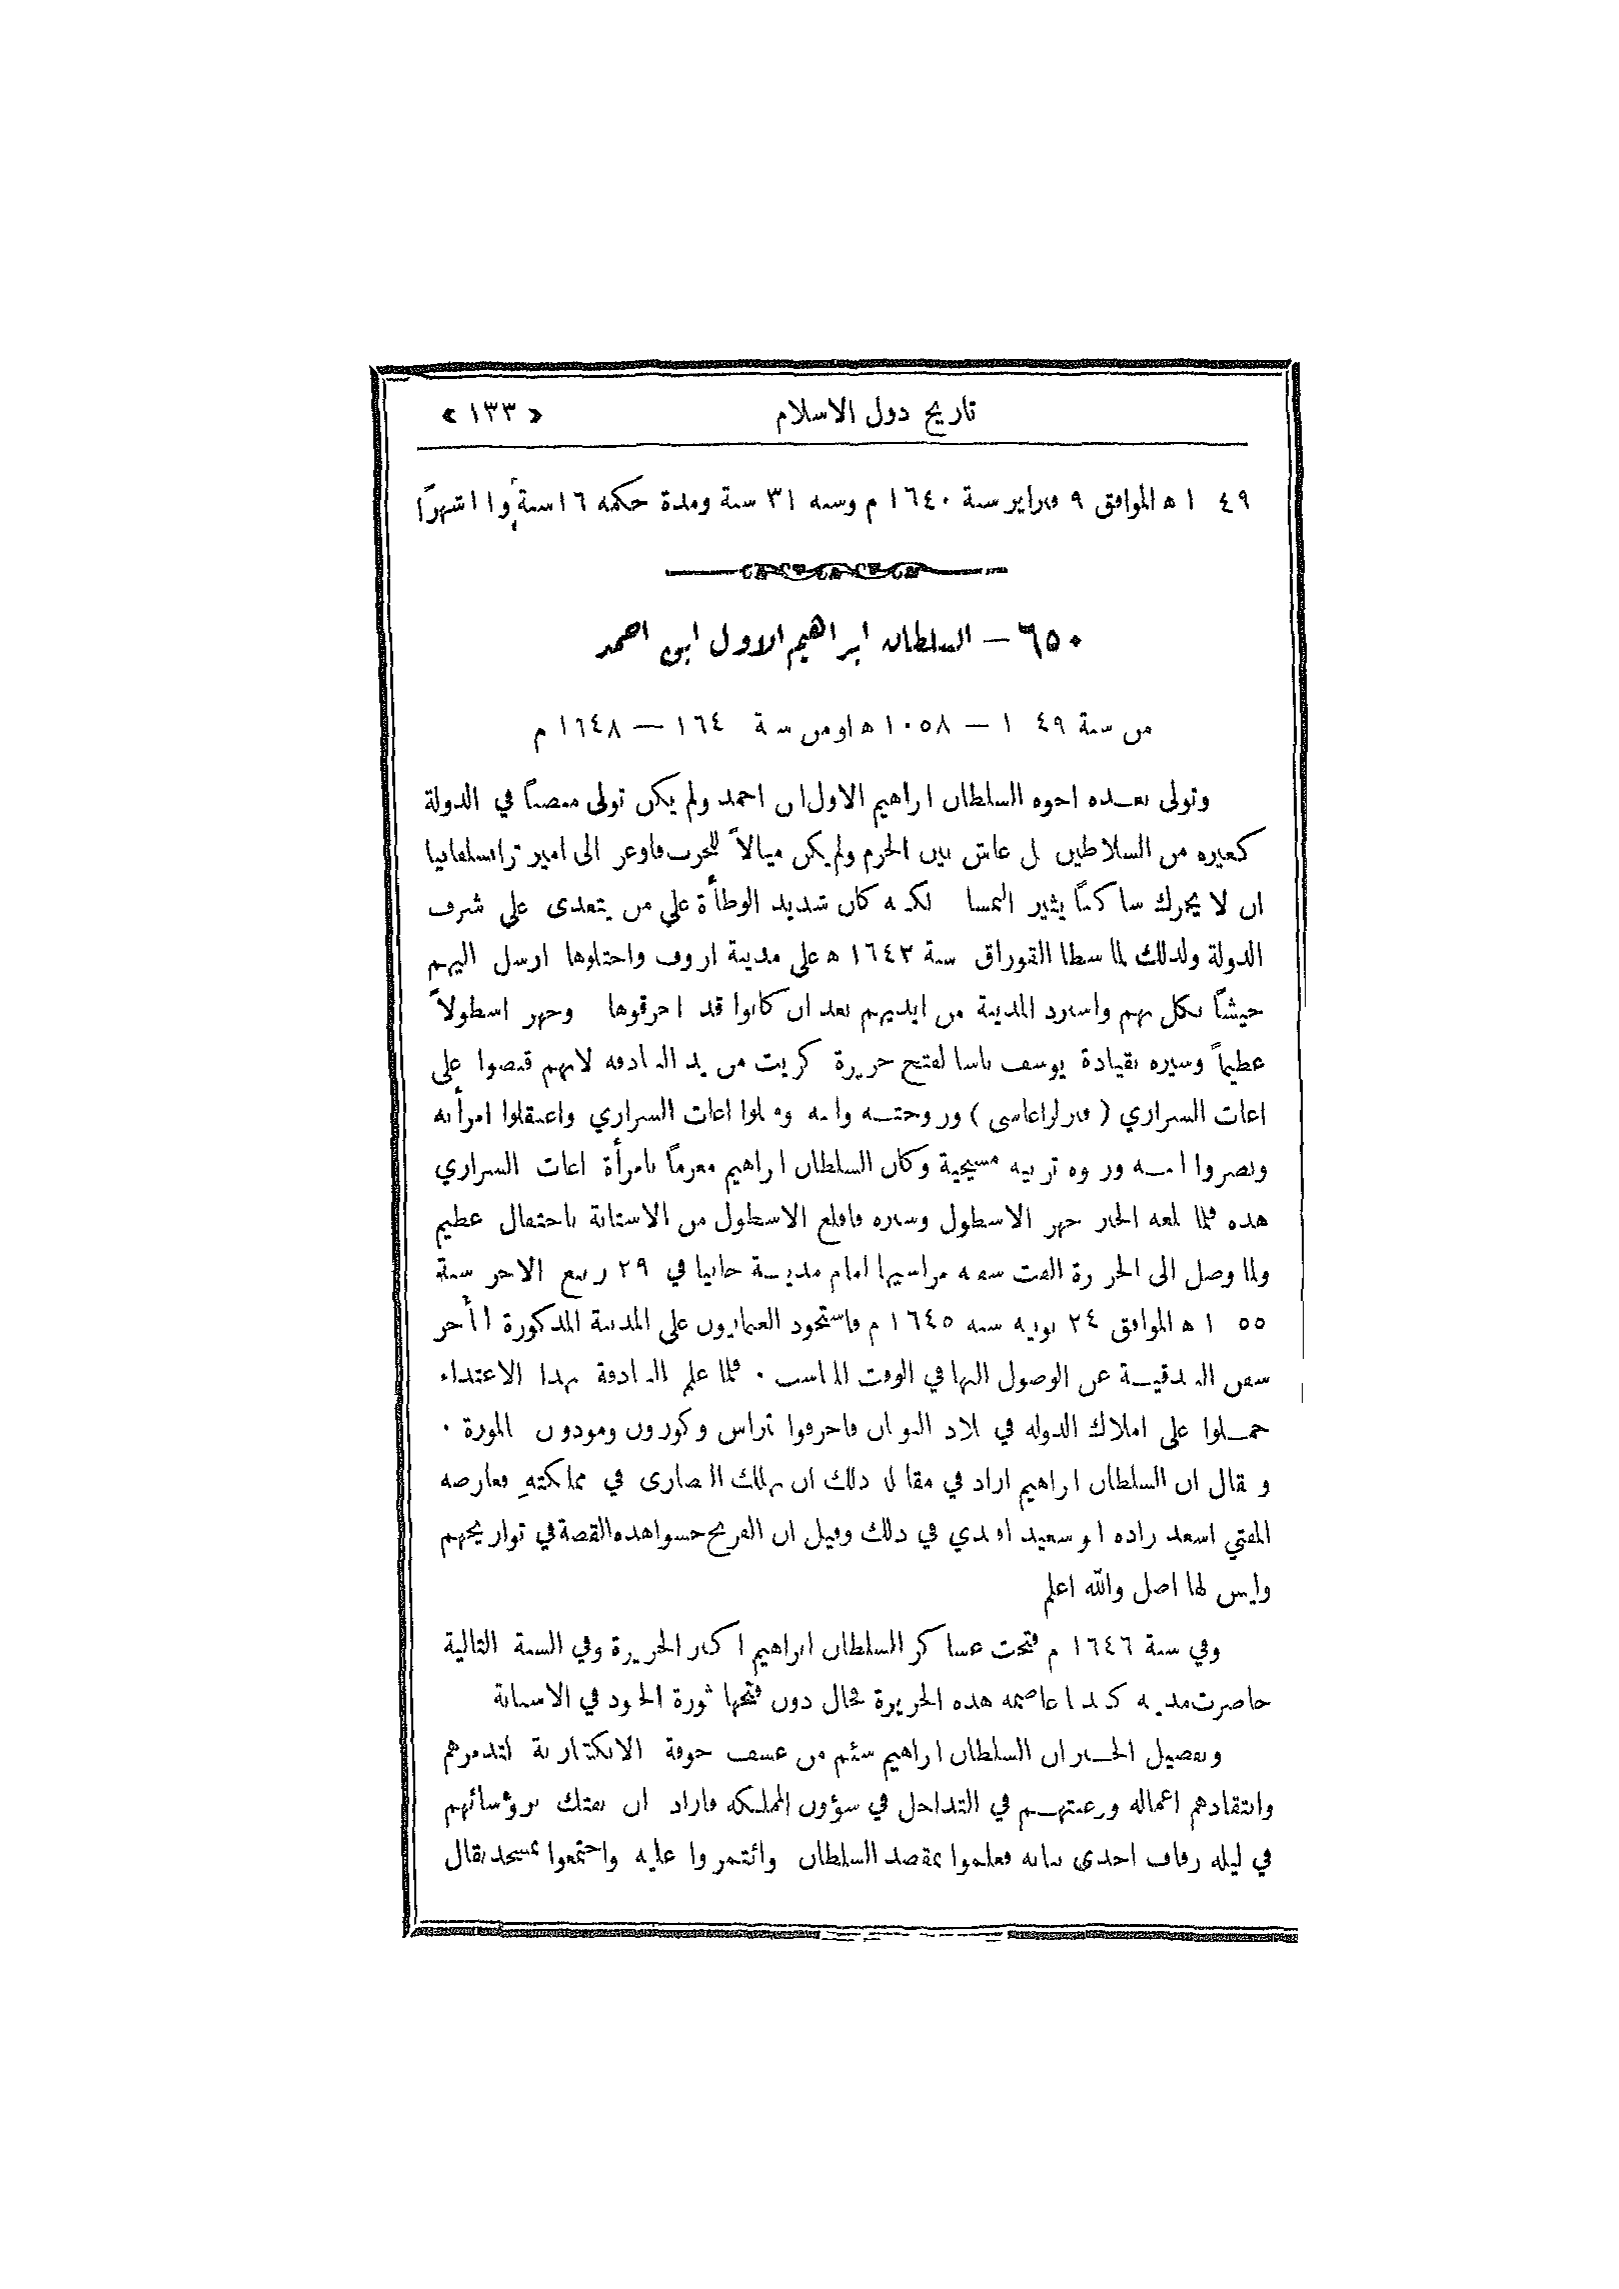 تاريخ دول الاسلام « ١٣٣ »
١٠٤٩ ه الموافق ٩ فبراير سنة ١٦٤٠ م وسنه ٣١ سنة ومدة حكمه ١٦ سنة و١١ شهرًا
٦٥٠ – السلطان ابراهيم الاول ابن احمد
من سنة ١٠٤٩ – ١٠٥٨ ه او من سنة ١٦٤٠ – ١٦٤٨ م
وتولى بعده اخوه السلطان ابراهيم الاول ابن احمد ولم يكن تولى منصبًا في الدولة
كغيره من السلاطين بل عاش بين الحرم ولم يكن ميالاً للحرب فاوعز الى امير ترانسلفانيا
ان لا يحرك ساكنًا يثير النمسا لكنه كان شديد الوطأة على من يتعدى على شرف
الدولة ولذلك لما سطا القوزاق سنة ١٦٤٢ ه على مدينة ازوف واحتلوها ارسل اليهم
جيشًا نكل بهم واسترد المدينة من ايديهم بعد ان كانوا قد احرقوها وجهز اسطولاً
عظيماً وسيره بقيادة يوسف باشا لفتح جزيرة كريت من يد البنادقة لانهم قبضوا على
اغات السراري ( قزلراغاسى ) وزوجته وابنه وقتلوا اغات السراري واعتقلوا امرأته
ونصروا ابنه وربوه تربيه مسيحية وكان السلطان ابراهيم مغرمًا بامرأة اغات السراري
هذه فلما بلغه الخبر جهز الاسطول وسيره فاقلع الاسطول من الاستانة باحتفال عظيم
ولما وصل الى الجزيرة القت سفنه مراسيها امام مدينة خانيا في ٢٩ ربيع الاخر سنة
١٠٥٥ ه الموافق ٢٤ يونيه سنه ١٦٤٥ م فاستحوذ العثمانيون على المدينة المذكورة لتأخر
سفن البندقية عن الوصول اليها في الوقت المناسب ٠ فلما علم البنادقة بهذا الاعتداء
حملوا على املاك الدوله في بلاد اليونان فاحرقوا بتراس وكورون ومودون بالمورة ٠
ويقال ان السلطان ابراهيم اراد في مقابل ذلك ان يهلك النصارى في مملكته فعارضه
المفتي اسعد زاده ابو سعيد افندي في ذلك وقيل ان الفرنج حسوا هذه القصة في تواريخهم
وليس لها اصل والله اعلم
وفي سنة ١٦٤٦ م فتحت عساكر السلطان ابراهيم اكثر الجزيرة وفي السنة التالية
حاصرت مدينه كنديا عاصمه هذه الجزيرة فحال دون فتحها ثورة الجنود في الاستانة
وتفصيل الخبر ان السلطان ابراهيم سئم من عسف جوقة الانكشارية لتذمرهم
وانتقادهم اعماله ورغبتهم في التداخل في شؤون المملكه فاراد ان يفتك برؤسائهم
في ليله زفاف احدى بناته فعلموا بمقصد السلطان وائتمروا عليه واجتمعوا بمسجد يقال